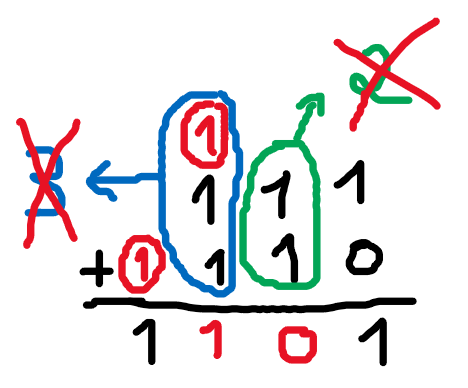 2
1
3 1 1 1
+ 1 1 1 0
1 1 0 1